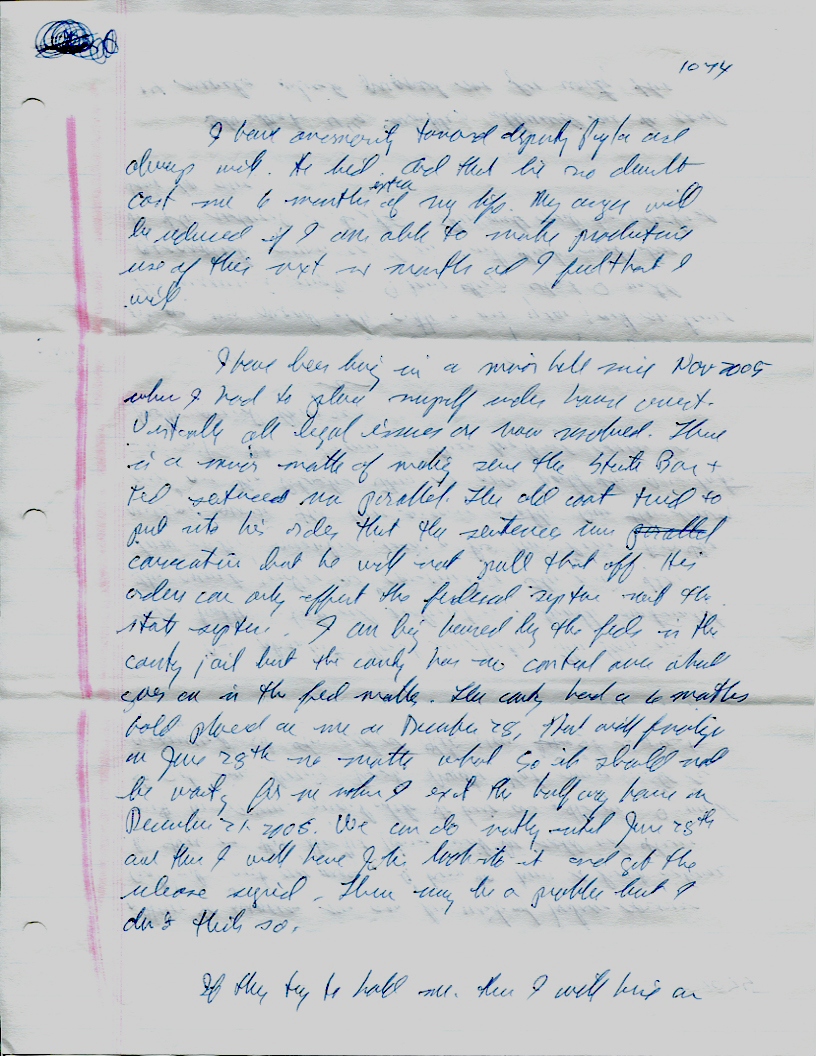 1 of 4
I have animosity toward deputy and
always will. He lied. And that lie no doubt
cost me 6 months extra of my life. My anger will
be reduced if I am able to make productive
use of this next six months and I feel that I
will.
I have been living in a minor hell since Nov 2005
when I had to place myself under house arrest.
Virtually all legal issues are now resolved. There
is a minor matter of making sure the State Bar +
Fed sentences run parallel. The old coot tried to
put into his orders that the sentences run parallel
consecutive but he will not pull that off. His
orders can only effect the federal system not the
state system. I am being housed by the feds in the
county jail but the county has no control over what
goes on in the fed matter. The county had a 6 months
hold placed on me on December 28, that will finalize
on June 28th no matter what so it should not
be waiting for me when I exit the half way house on
December 21 2006. We can do nothing until June 28th
and then I will have look into it and get the
release signed. There may be a problem but I
don't think so.
If they try to hold me. then I will have an